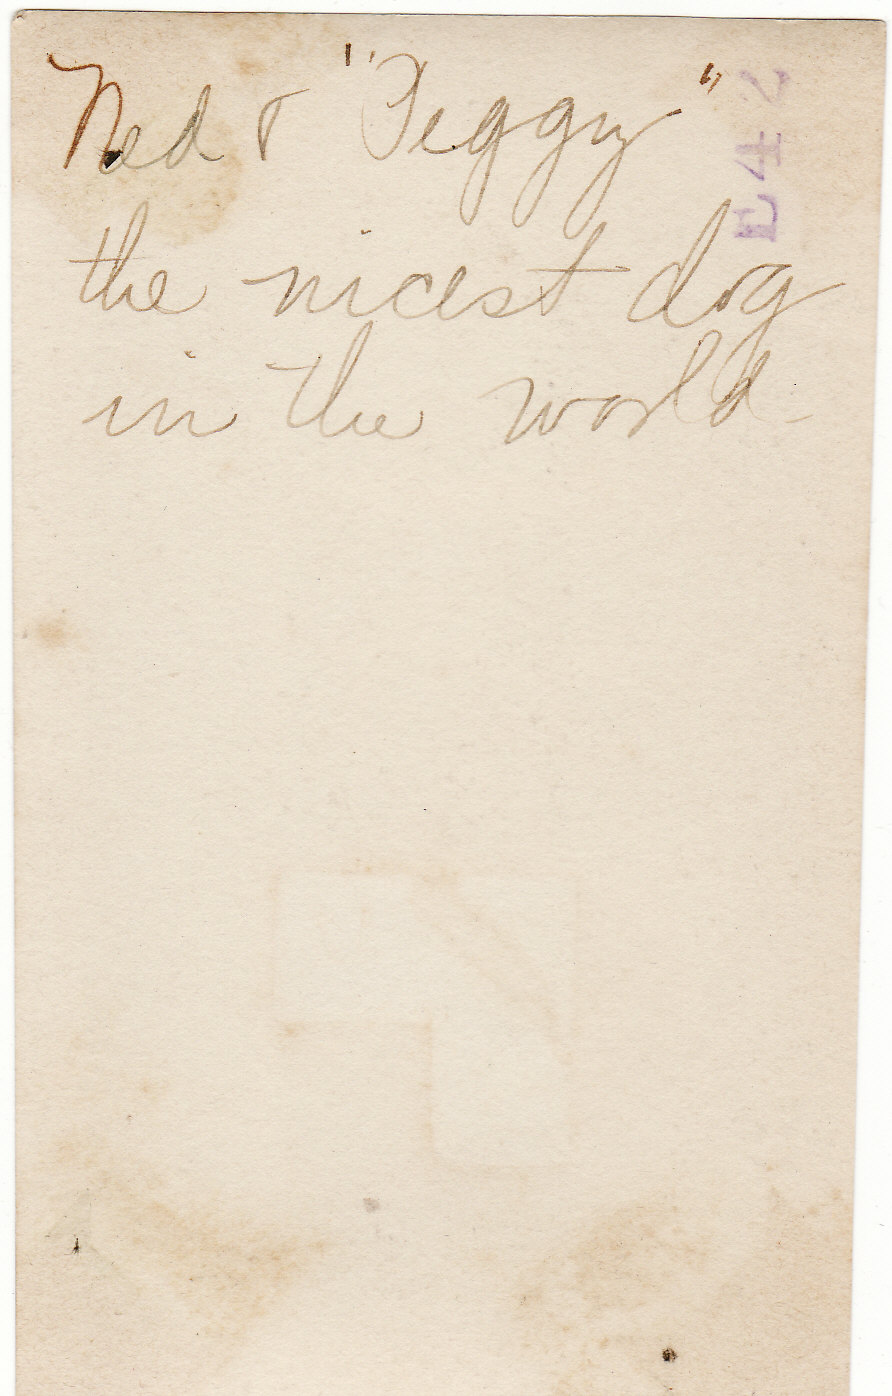 Ned & "Peggy"
the nicest dog
in the world-
E442